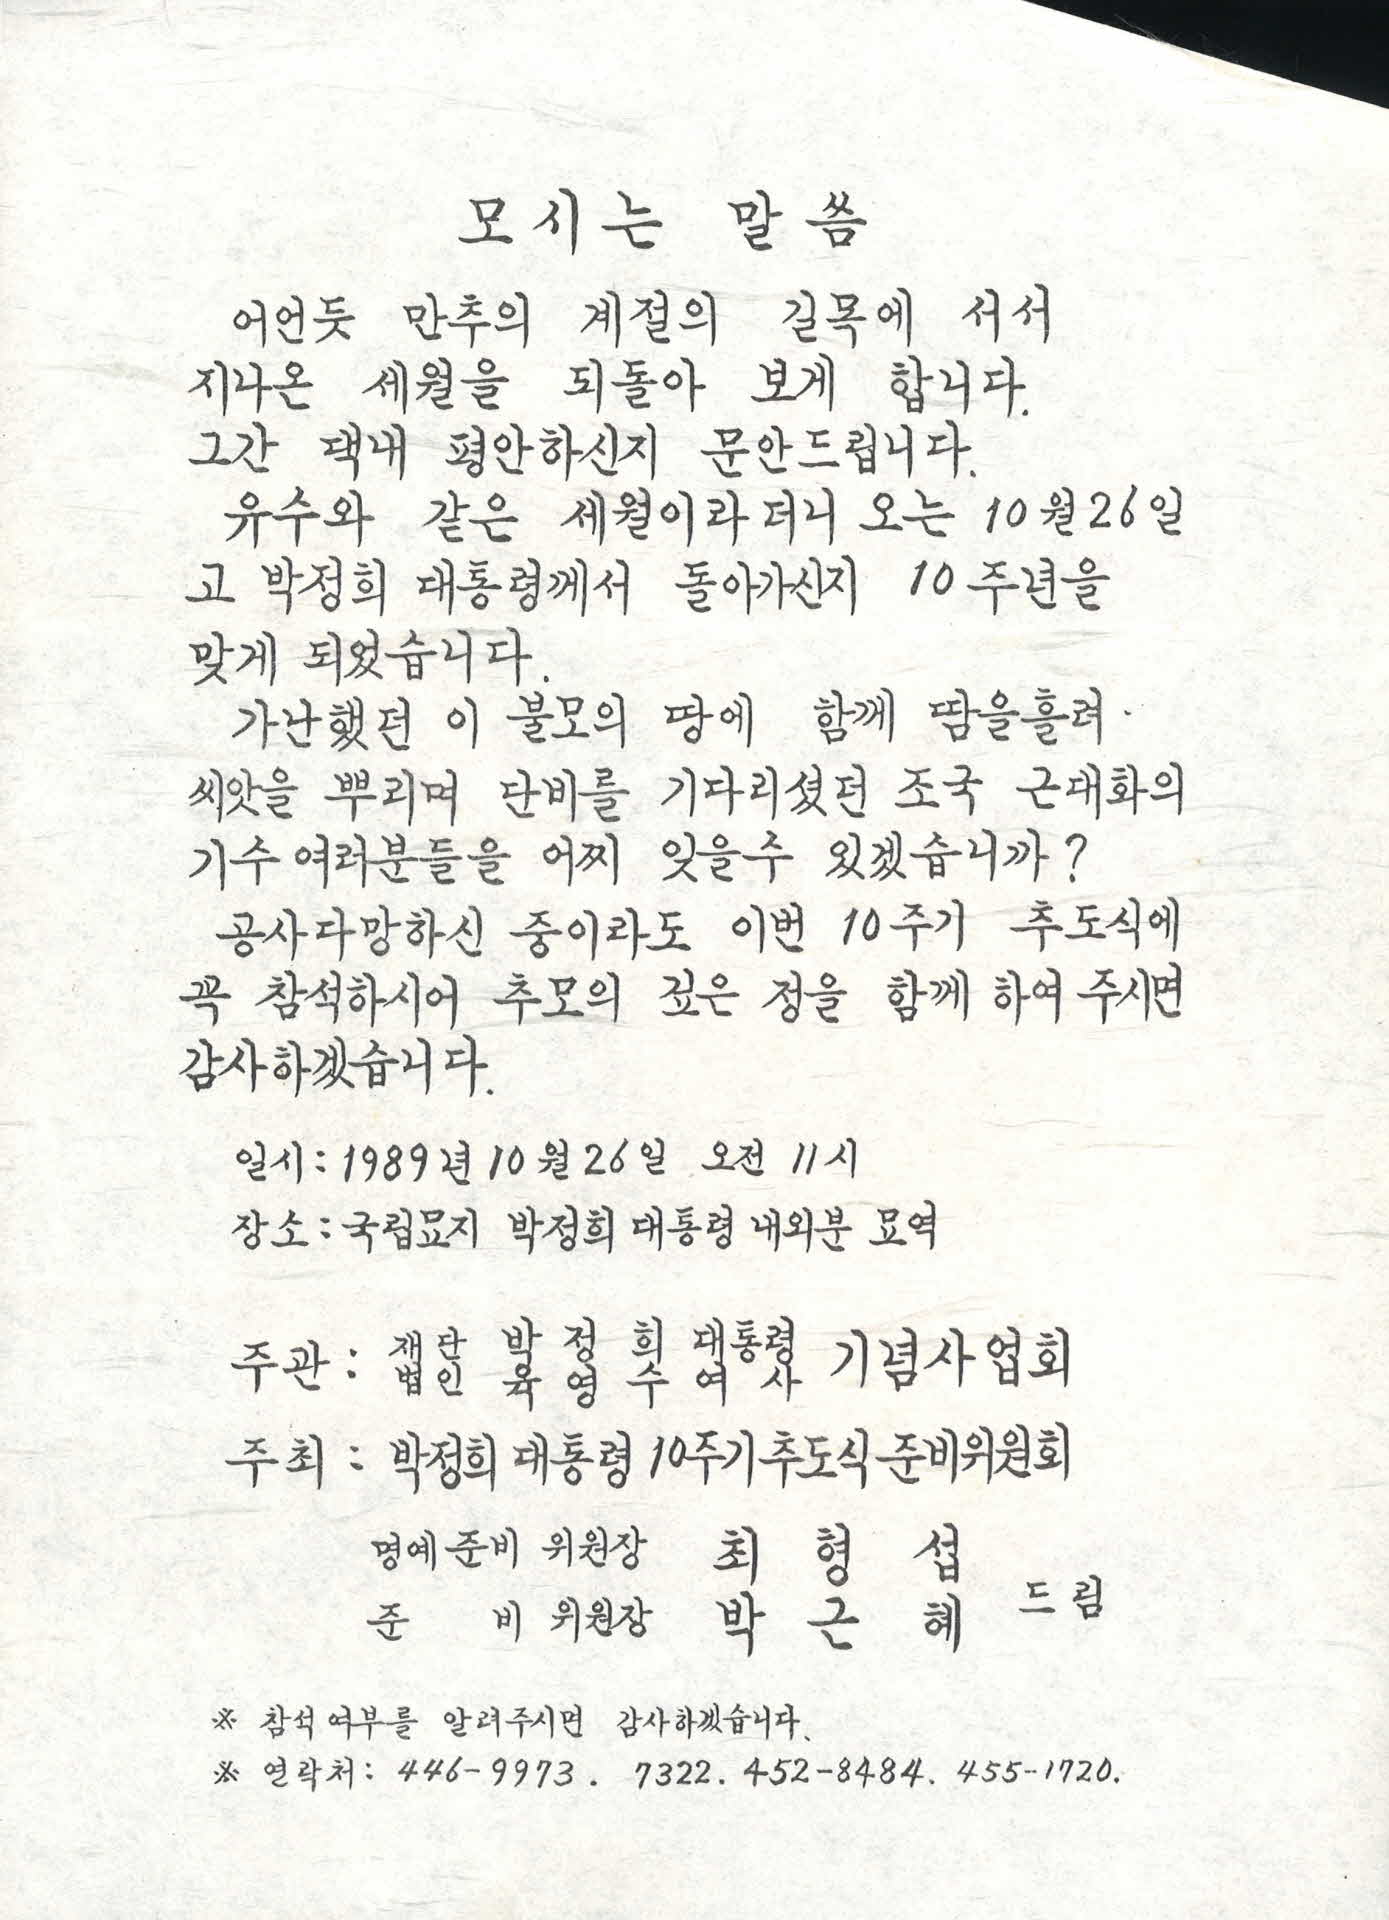 모시는 말씀
어언듯 만추의 계절의 길목에 서서
지나온 세월을 되돌아 보게 합니다.
그간 댁내 평안하신지 문안드립니다.
유수와 같은 세월이라더니 오는 10월26일
고 박정희 대통령께서 돌아가신지 10주년을
맞게 되었습니다.
가난했던 이 불모의 땅에 함께 땀을흘려
씨앗을 뿌리며 단비를 기다리셨던 조국 근대화의
기수 여러분들을 어찌 잊을수 있겠습니까?
공사다망하신 중이라도 이번 10주기 추도식에
꼭 참석하시어 추모의 깊은 정을 함께 하여 주시면
감사하겠습니다.
일시: 1989년 10월 26일 오전 11시
장소: 국립묘지 박정희 대통령 내외분 묘역
주관: 재단 박정희 대통령 기념사업회
법인 육영수 여사
주최: 박정희 대통령 10주기 추도식 준비위원회
명예준비 위원장 최형섭
준비 위원장 박근혜 드림
※ 참석여부를 알려주시면 감사하겠습니다.
※ 연락처: 446-9973. 7322. 452-8484. 455-1720.